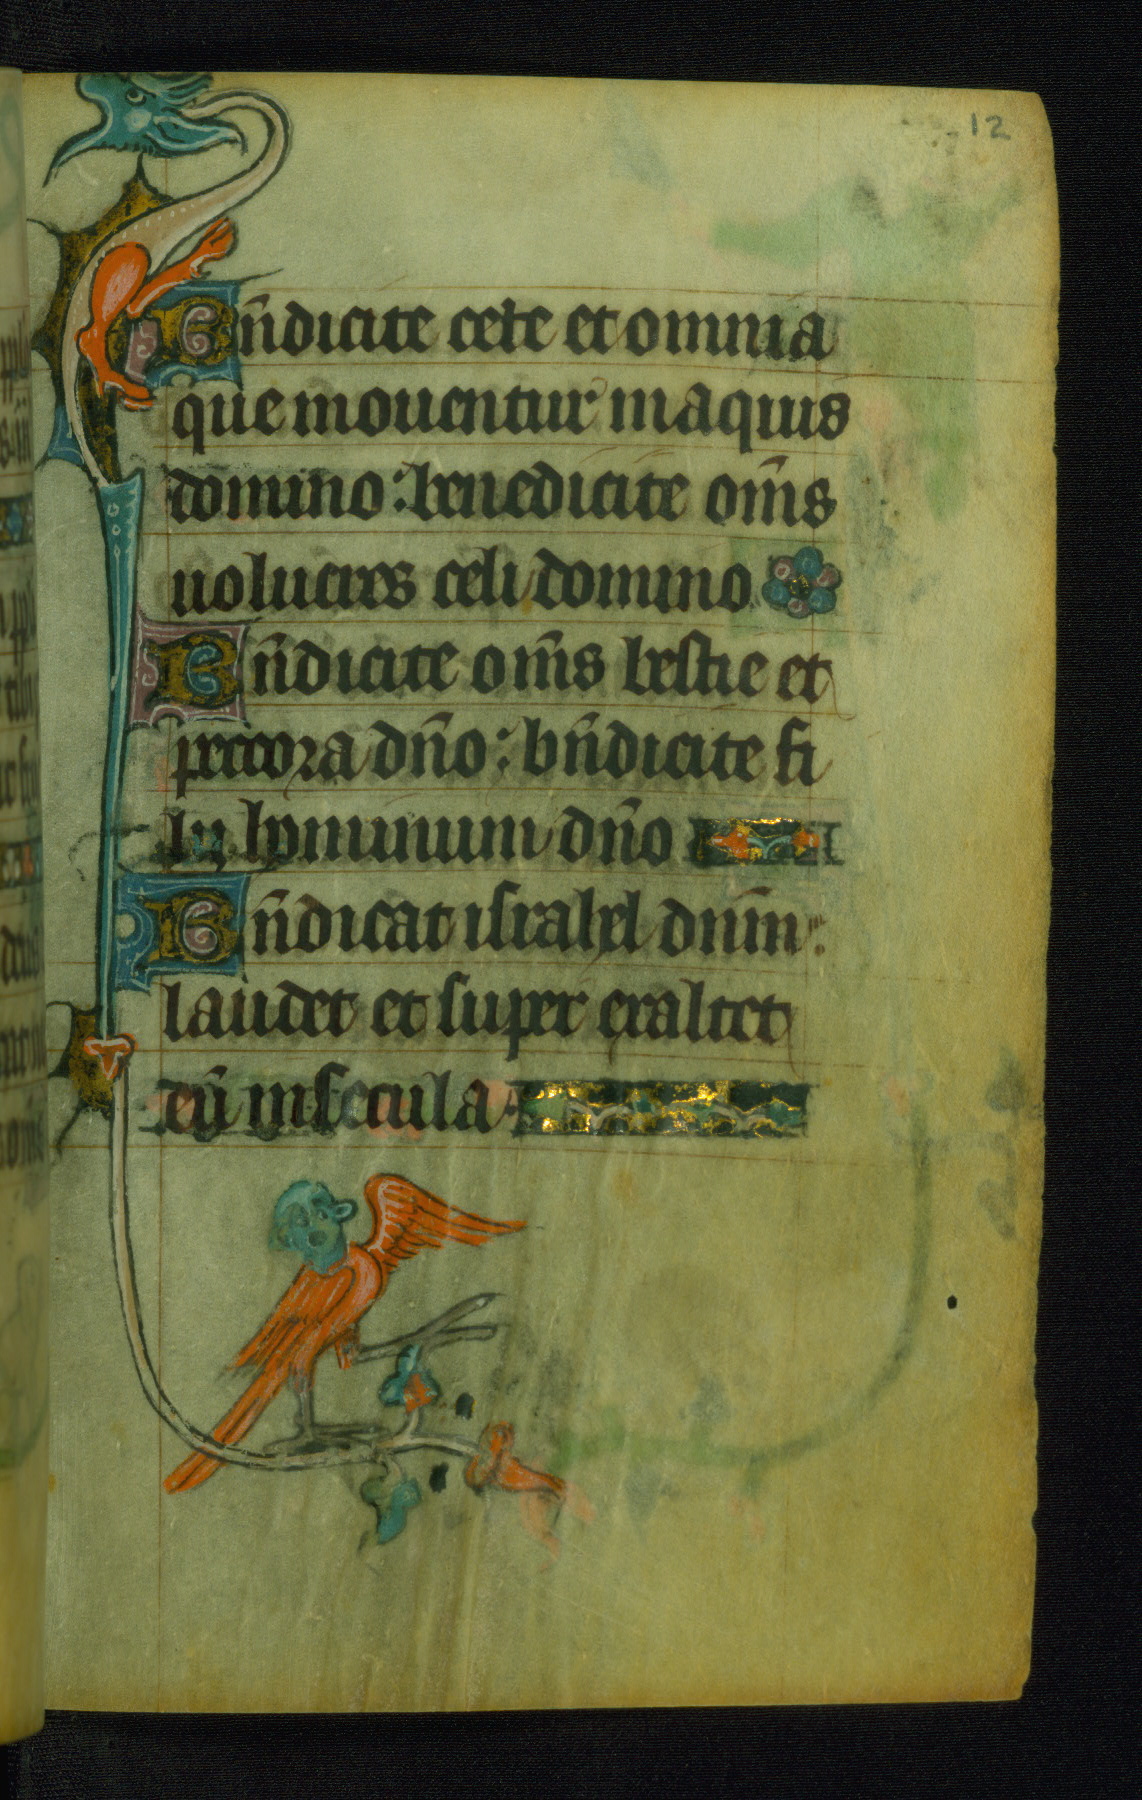 12
Bn̄dicite cete et omnia
que mouentur in aquis
domino : benedicite om̄s
uolucres celi domino
Bn̄dicite om̄s bestie et
peccora dn̄o : bn̄dicite fi
lij hominum dn̄o
Bn̄dicat israhel dnm̄ :
laudet et super exaltet
eū in secula